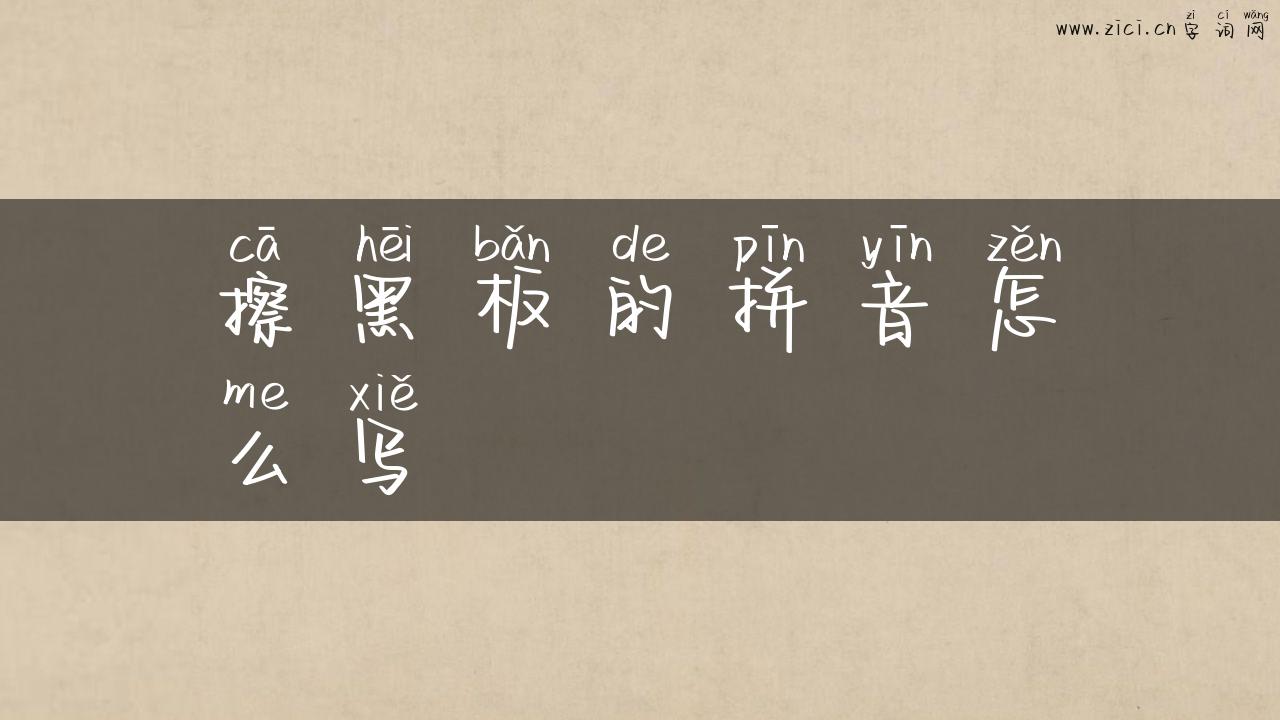 zì cí wǎng
www.zici.cn 字词网
cā hēi bǎn de pīn yīn zěn
擦黑板的拼音怎
me xiě
么写